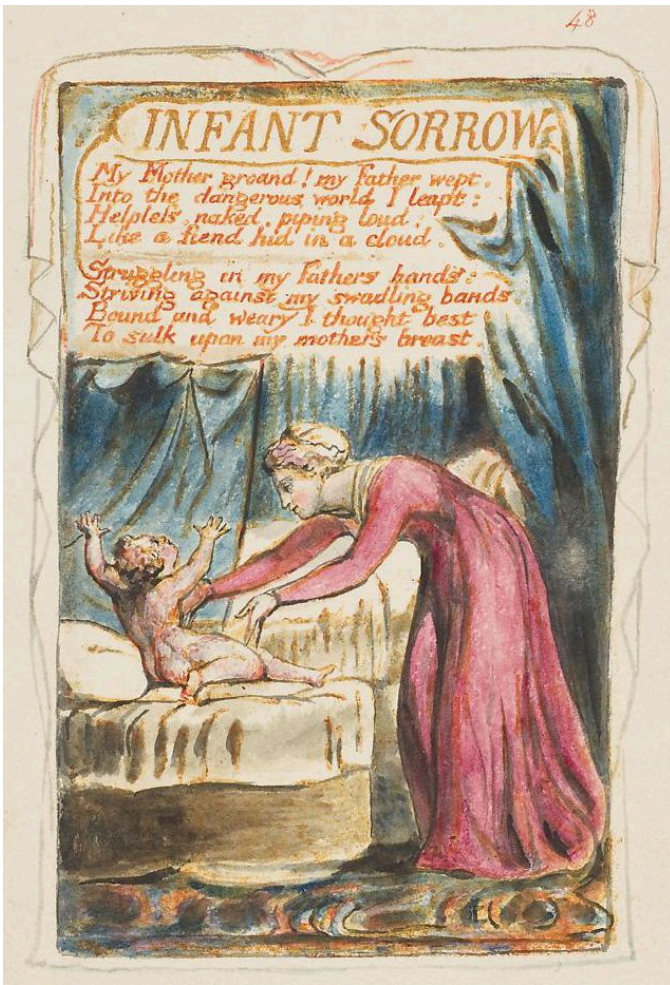 48
INFANT SORROW
My Mother groand! my Father wept.
Into the dangerous world I leapt:
Helpless, naked, piping loud:
Like a fiend hid in a cloud.
Struggling in my Fathers hands:
Striving against my swadling bands:
Bound and weary I thought best
To sulk upon my mothers breast.